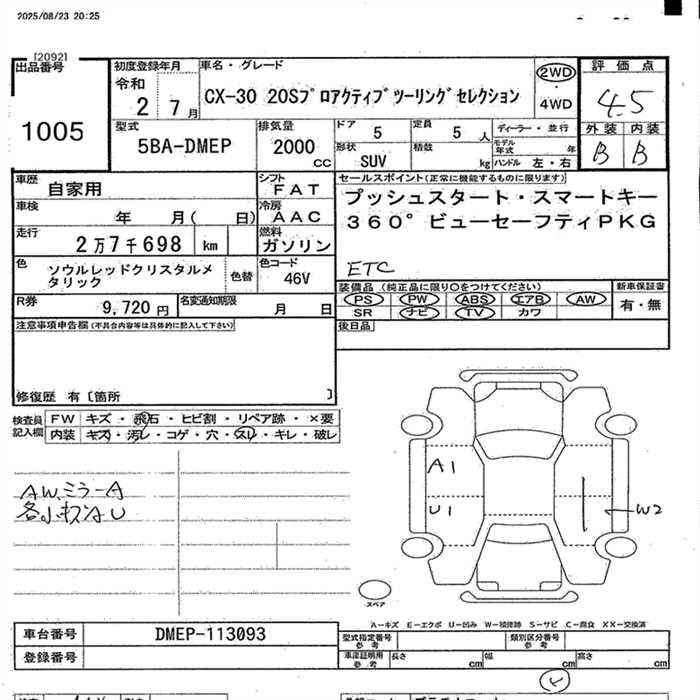 2025/08/23 20:25
[2092]
出品番号
1005
初度登録年月
令和
2 7月
車名・グレード
CX-30 20Sプロアクティブツーリングセレクション
2WD
・
4WD
評価点
4.5
外装 内装
B B
型式
5BA-DMEP
排気量
2000
cc
ドア
5
定員
5 人
形状
SUV
積載
kg
ディーラー・並行
モデル年式 年
ハンドル 左・右
車歴
自家用
シフト
FAT
車検
年 月( 日)
冷房
AAC
走行
2万7千698 km
燃料
ガソリン
色
ソウルレッドクリスタルメタリック
色替
色コード
46V
R券
9,720円
名変通知期限
月 日
セールスポイント(正常に機能するものに限ります)
プッシュスタート・スマートキー
360°ビューセーフティPKG
ETC
装備品 (純正品に限り○をつけてください)
PS PW ABS エアB AW
SR ナビ TV カワ
新車保証書
有・無
後日品
注意事項申告欄(不具合内容等は具体的に記入して下さい)
修復歴 有〔箇所 〕
検査員記入欄
FW キズ・飛石・ヒビ割・リペア跡・×要
内装 キズ・汚レ・コゲ・穴・スレ・キレ・破レ
AW、ミラーA
各小キズAU
A1
U1
W2
スペア
A-キズ E-エクボ U-凹み W-補修跡 S-サビ C-腐食 XX-交換済
車台番号
DMEP-113093
登録番号
型式指定番号
参考
類別区分番号
参考
車庫証明用
参考
長さ cm
幅 cm
高さ cm